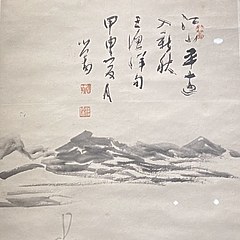 江山平遠
入新秋
王漁洋句
甲申夏月